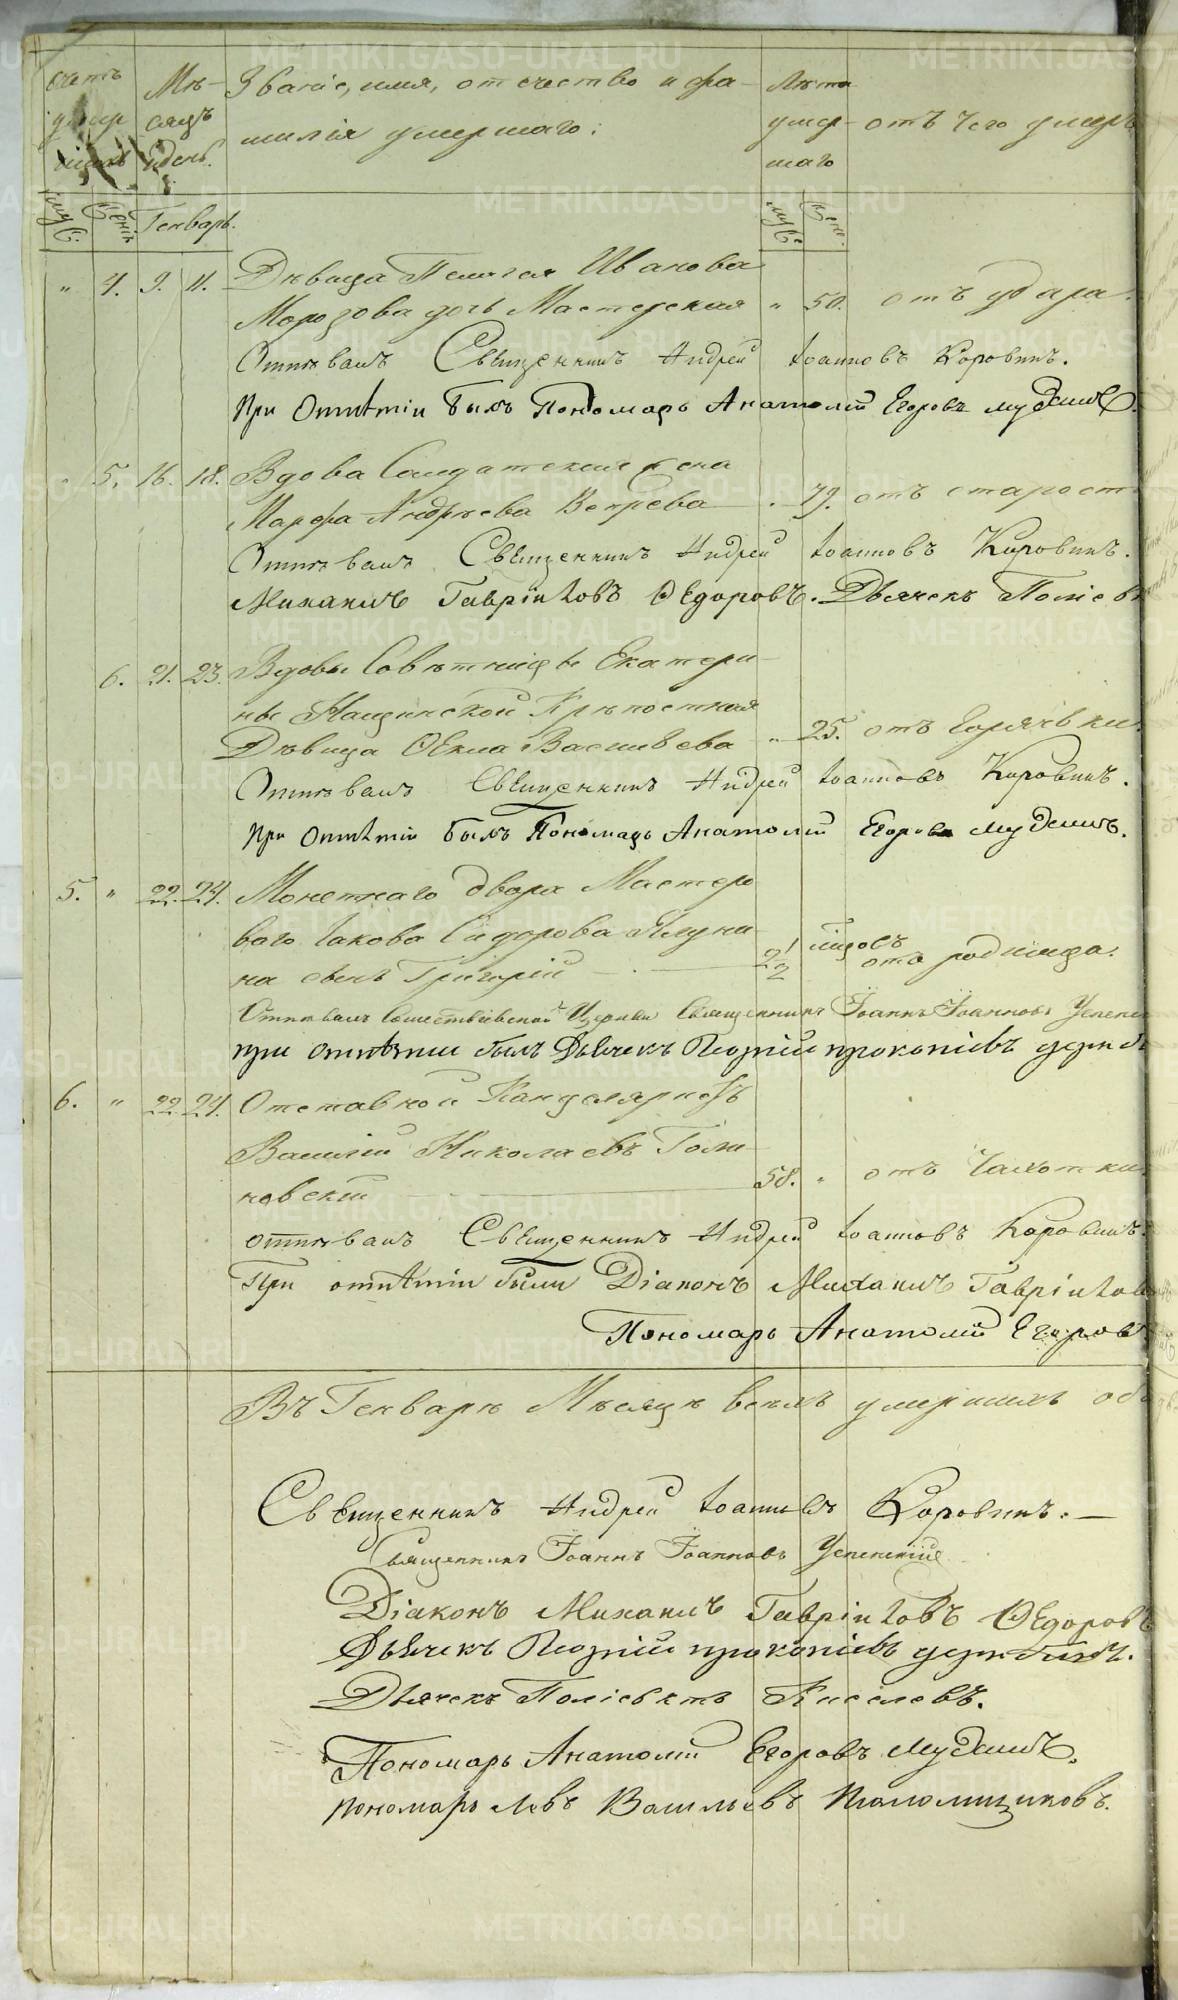 счетъ Мѣ- Званіе, имя, отчество и фа- Лѣта
умер сяцъ милія умершаго. умер- отъ чего умеръ
шихъ и день. шаго
муж. женск. Генварь. муж. женс.
" 4. 9. 11. Дѣвица Пелагея Иванова
Морозова дочь Мастерская " 50. отъ удара.
Отпѣвалъ Священникъ Андрей Іоанновъ Коровинъ.
При Отпѣтіи былъ Пономарь Анатолій Егоровъ
5. 16. 18. Вдова Солдатская жена
Марфа Андрѣева Вепрева 79. отъ старост
Отпѣвалъ Священникъ Андрей Іоанновъ Коровинъ.
Михаилъ Гавріиловъ Ѳедоровъ. Дьячекъ Поліев
6. 21. 23. Вдовы Совѣтницы Екатери-
ны Нащинской Крѣпостная
Дѣвица Ѳекла Васильева " 25. отъ горячьки.
Отпѣвалъ Священникъ Андрей Іоанновъ Коровинъ.
При Отпѣтіи былъ Пономарь Анатолій Егоровъ
5. " 22. 24. Монетнаго двора Мастеро
ваго Іакова Сидорова
на сынъ Григорій 2 1/2 годовъ отъ родимца.
Отпѣвалъ Священникъ Іоаннъ Іоанновъ Успенс
при отпѣтіи былъ Дьячекъ Прокопіевъ
6. " 22. 24. Отставной Канцеляристъ
Василій Николаевъ Голи-
новскій 58. " отъ Чахотки
отпѣвалъ Священникъ Андрей Іоанновъ Коровинъ.
При отпѣтіи были Діаконъ Михаилъ Гавріилов
Пономарь Анатолій Егоров
Въ Генварѣ Мѣсяцѣ всѣхъ умершихъ об
Священникъ Андрей Іоанновъ Коровинъ.
Священникъ Іоаннъ Іоанновъ Успенскій
Діаконъ Михаилъ Гавріиловъ Ѳедоровъ
Дьячекъ Прокопіевъ
Дьячекъ Поліевктъ Киселевъ.
Пономарь Анатолій Егоровъ
Пономарь Левъ Васильевъ
METRIKI.GASO-URAL.RU